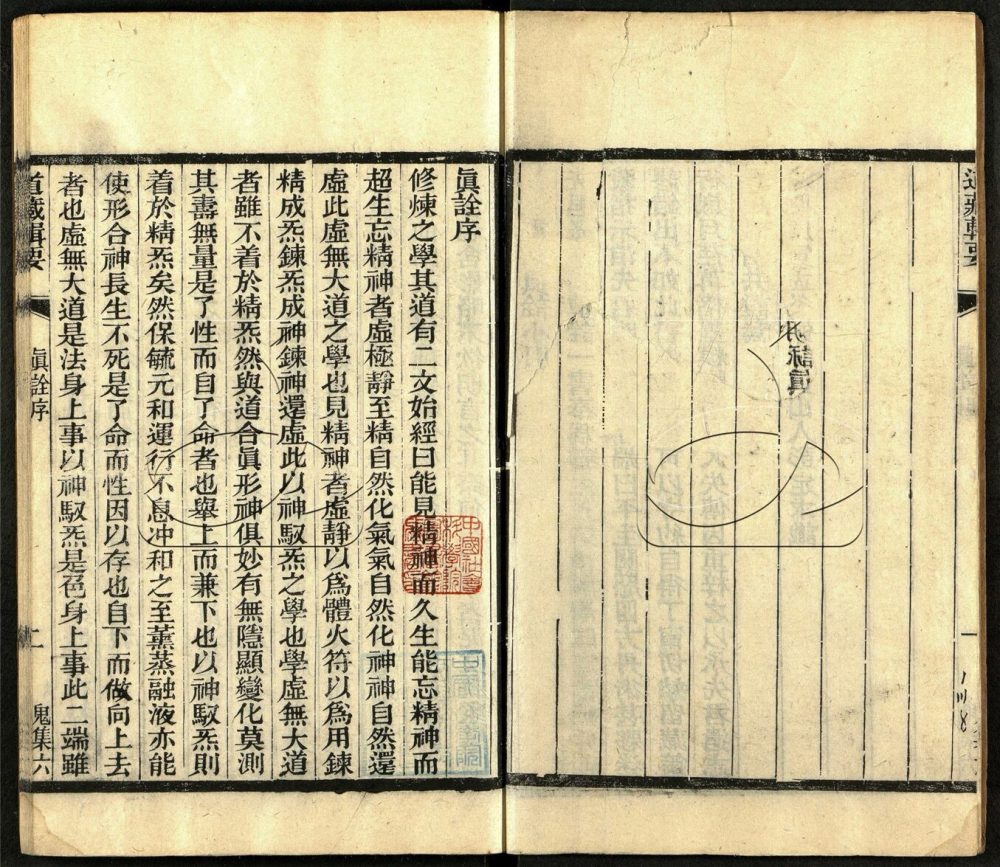 道藏輯要
一
泳詠眞
眞詮序
修煉之學其道有二文始經曰能見精神而久生能忘精神而
超生忘精神者虛極靜至精自然化氣氣自然化神神自然還
虛此虛無大道之學也見精神者虛靜以爲體火符以爲用鍊
精成炁鍊炁成神鍊神還虛此以神馭炁之學也學虛無大道
者雖不着於精炁然與道合眞形神俱妙有無隱顯變化莫測
其壽無量是了性而自了命者也舉上而兼下也以神馭炁則
着於精炁矣然保毓元和運行不息冲和之至薰蒸融液亦能
使形合神長生不死是了命而性因以存也自下而做向上去
者也虛無大道是法身上事以神馭炁是色身上事此二端雖
道藏輯要
眞詮序
二
鬼集六